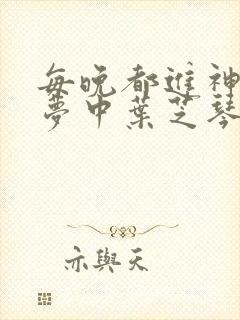 每晚都進神
夢中葉芝琴
亦與天